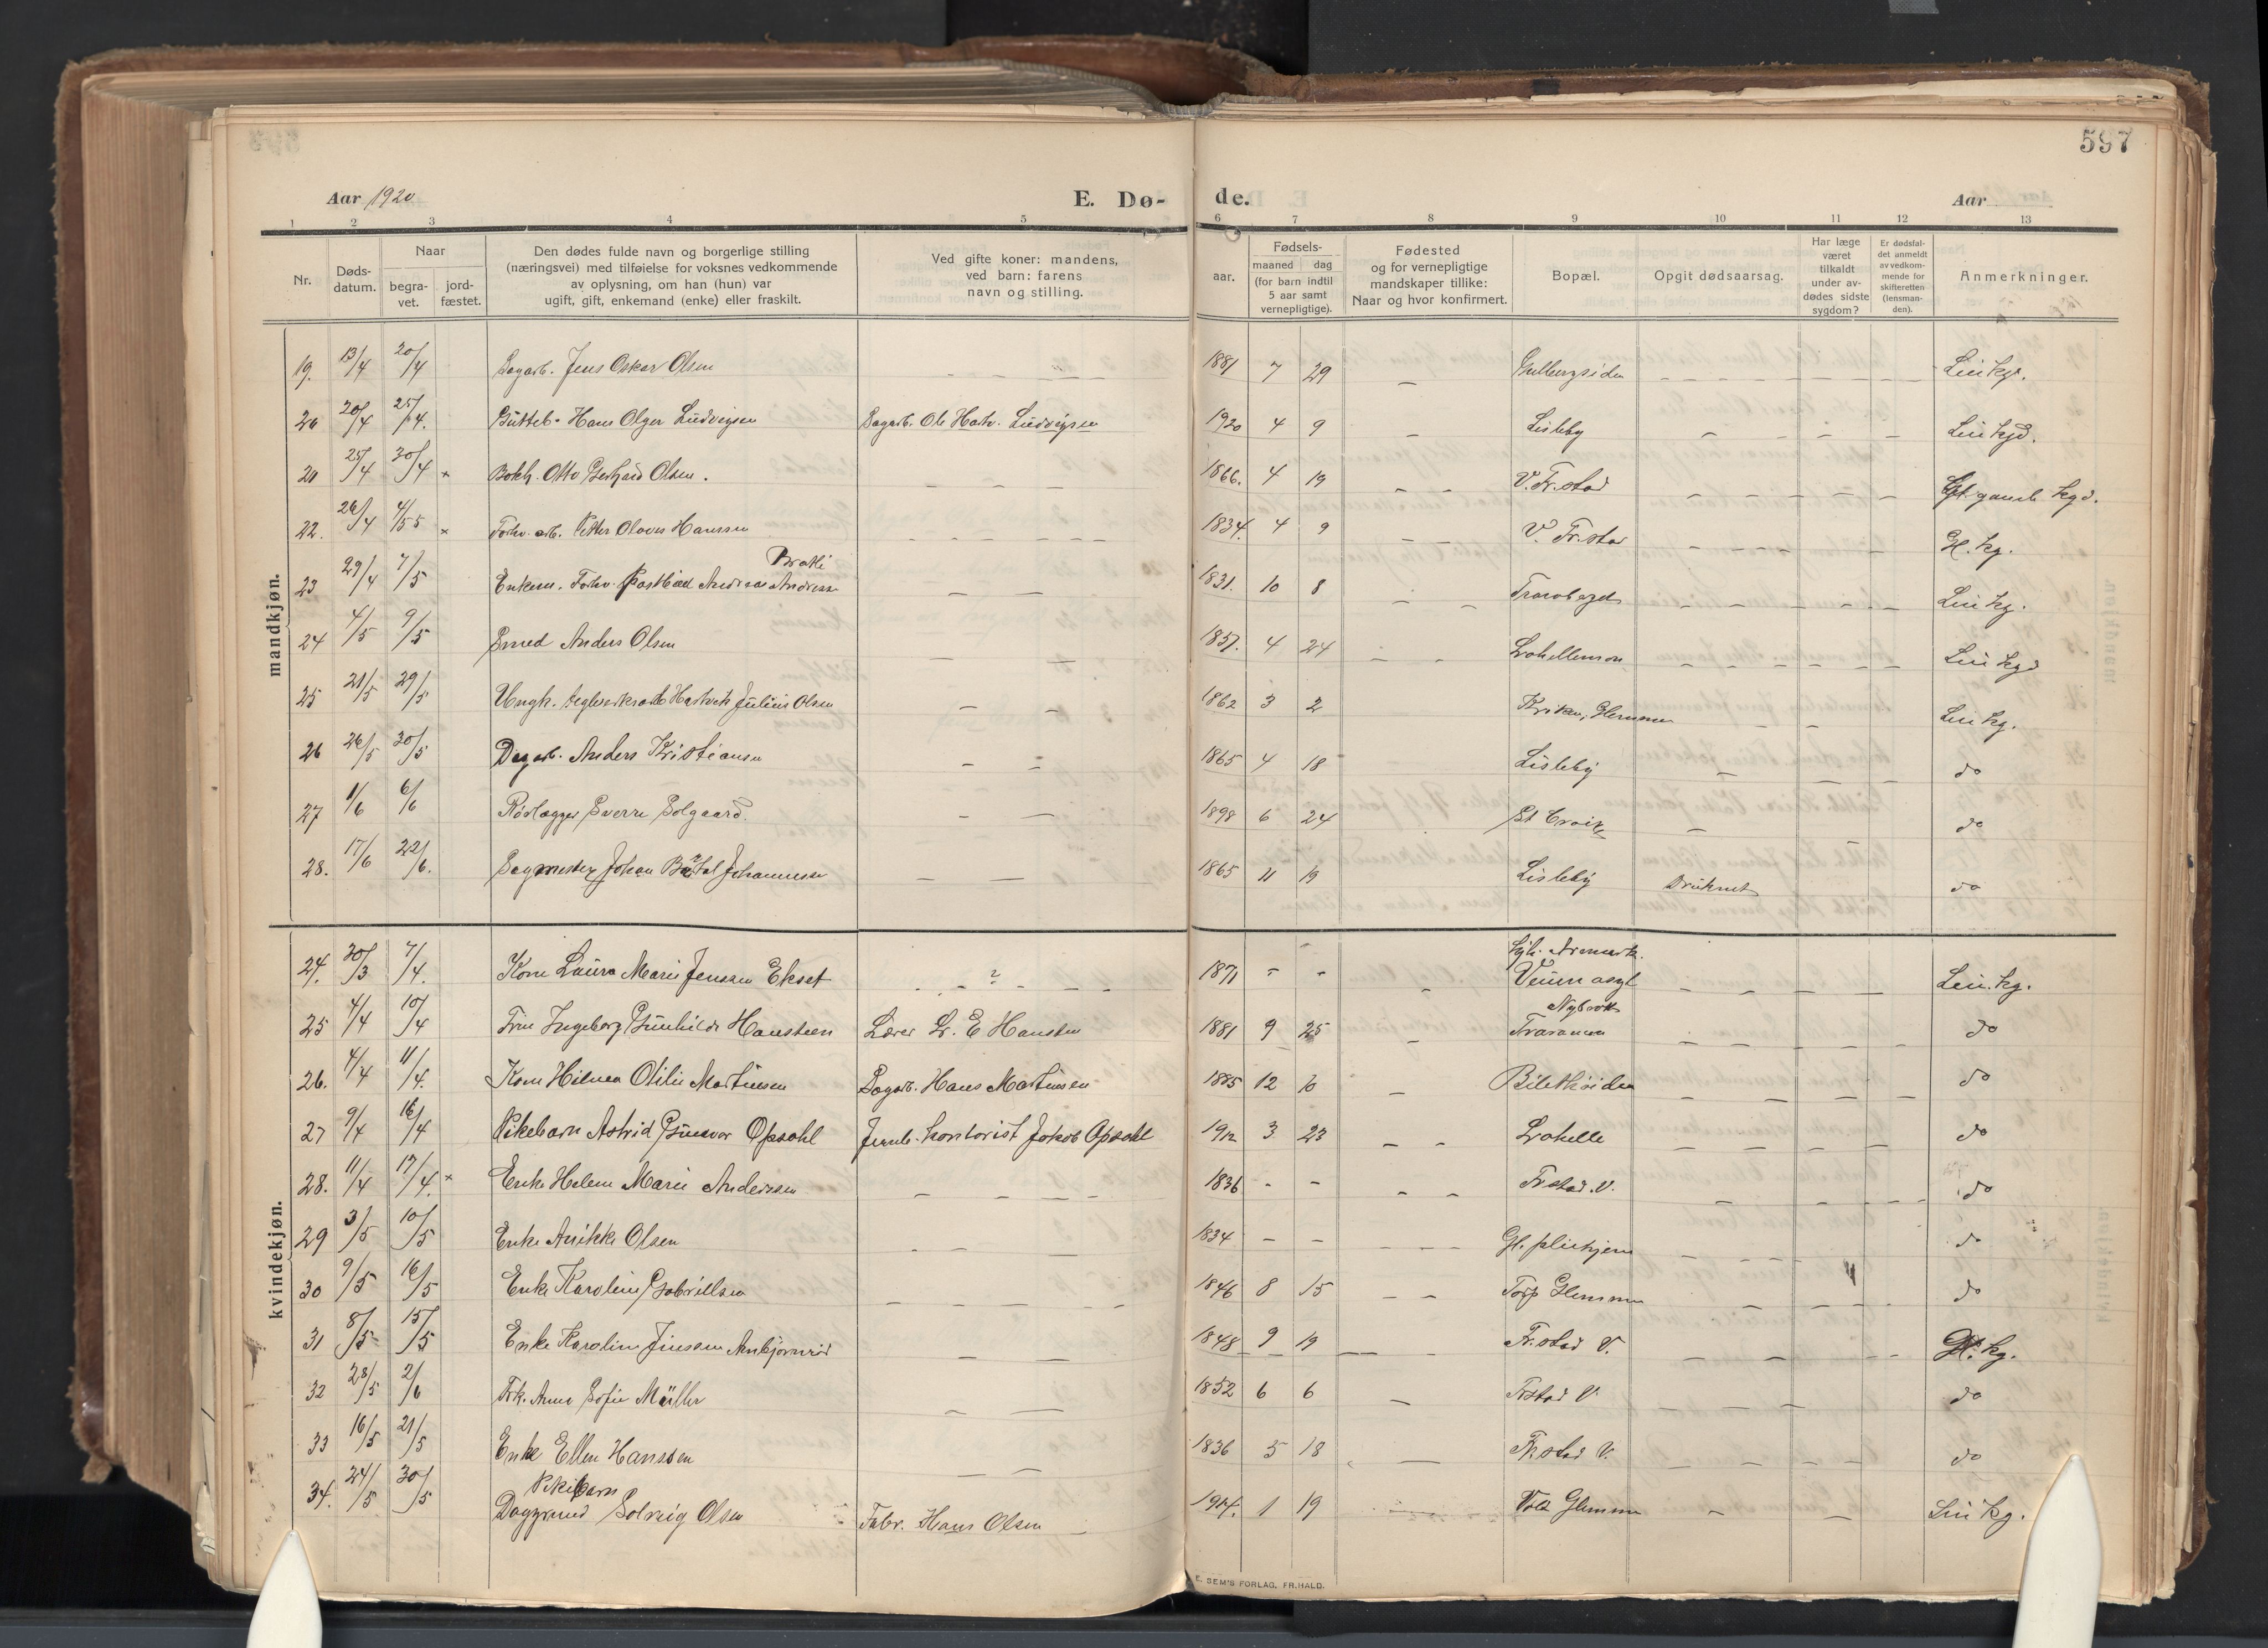 597
Aar 1920 E. Dø- de. Aar
1 2 3 4 5 6 7 8 9 10 11 12 13
Nr.
Døds-
datum.
Naar
begra-
vet.
jord-
fæstet.
Den dødes fulde navn og borgerlige stilling
(næringsvei) med tilføielse for voksnes vedkommende
av oplysning, om han (hun) var
ugift, gift, enkemand (enke) eller fraskilt.
Ved gifte koner: mandens,
ved barn: farens
navn og stilling.
aar.
Fødsels-
maaned dag
(for barn indtil
5 aar samt
vernepligtige).
Fødested
og for vernepligtige
mandskaper tillike:
Naar og hvor konfirmert.
Bopæl.
Opgit dødsaarsag.
Har læge
været
tilkaldt
under av-
dødes sidste
sygdom?
Er dødsfal-
det anmeldt
av vedkom-
mende for
skifteretten
(lensman-
den).
Anmerkninger.
mandkjøn.
19. 13/4 20/4 Sagarb. Jens Oskar Olsen 1881 7 29 Gullbergsiden Lei kg.
20 20/4 25/4. Gutteb. Hans Olger Ludvigsen Sagarb. Ole Hartv. Ludvigsen 1920 4 9 Lisleby Lei kgd.
21 25/4 30/4 x Bokh. Otto Gerhard Olsen. 1866. 4 19 V. Fr.stad Gl. gamle kgd.
22. 26/4 4/5 x Forhv. arb. Petter Olaves Hanssen 1834. 4 9 V. Fr.stad Gl. kg.
Brække
23 29/4 7/5 Enkem. Forhv. Postbud Andreas Andressen 1831. 10 8 Traraberget Lei kg.
24 4/5 9/5 Smed Anders Olsen 1857. 4 24 Lahellemoen Lei kgd
25 21/5 29/5 Ungk. teglverksarb. Hartvik Julius Olsen 1862 3 2 Glemmen Lei kg.
26 26/5 30/5 Dagarb. Anders Kristiansen 1865 4 18 Lisleby do
27 1/6 6/6 Rørlægger Sverre Solgaard. 1898 6 24 St Croix do
28. 17/6 22/6. Sagmester Johan Johannessen 1865 11 19 Lisleby Druknet do
kvindekjøn.
24. 30/3 7/4. Kone Laura Marie Jenssen Ekset ? 1871 - - Aremark. Veum asyl Lei. kg.
Nybrott
25 4/4 10/4 Fru Ingeborg Gunhilde Hansteen Lærer E Hansteen 1881 9 25 Traraveien do
26. 4/4 11/4. Kone Hilma Otilie Martinsen Sagarb. Hans Martinsen 1885 12 10 do
27 9/4 16/4 Pikebarn Astrid Gunvor Opsahl Jernb. kontorist Jakob Opsahl 1912 3 23 Lahelle do
28. 11/4 17/4. x Enke Helene Marie Andersen 1836 - - Fr.stad. V. do
29 3/5 10/5 Enke Anikke Olsen 1834 - - Gl. pleiehjem do
30 9/5 16/5 Enke Karoline Gabrielsen 1846 8 15 Torp Glemmen do
31 8/5 15/5 Enke Karoline Jenssen Ambjørnrød 1848 9 19 Fr.stad V. Gl. kg.
32 28/5 2/6 Frk. Anna Sofie Müller 1852 6 6 Frstad V. do
33 16/5 21/5 Enke Ellen Hanssen 1836 5 18 Frstad V. do
Pikebarn
34. 24/5 30/5 Dagrund Solveig Olsen Fabr. Hans Olsen 1914. 1 19 Glemmen Lei kg.
E. SEM'S FORLAG, FR.HALD.